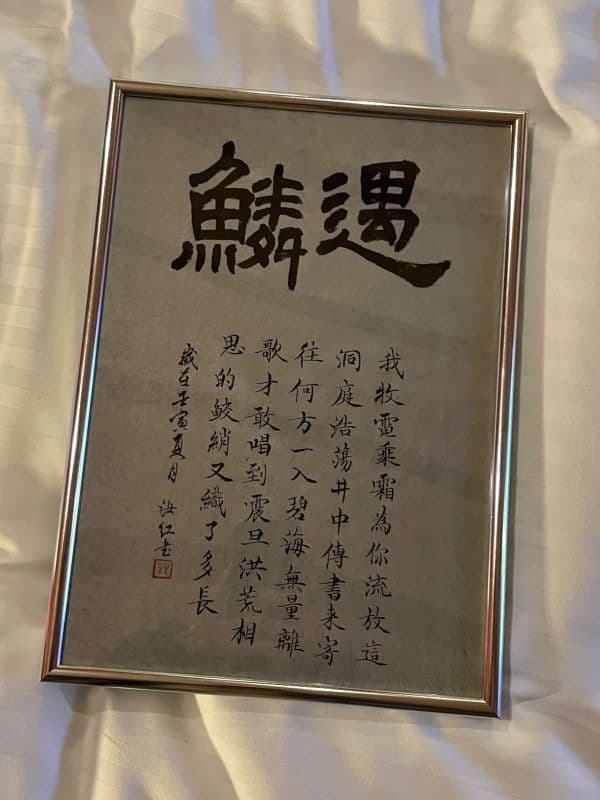 遇鱗
我牧雷乘霜為你流放這
洞庭浩蕩井中傳書来寄
往何方一入碧海無量離
歌才敢唱到震旦洪荒相
思的鮫綃又織了多長
歲在壬寅夏月 汝红书